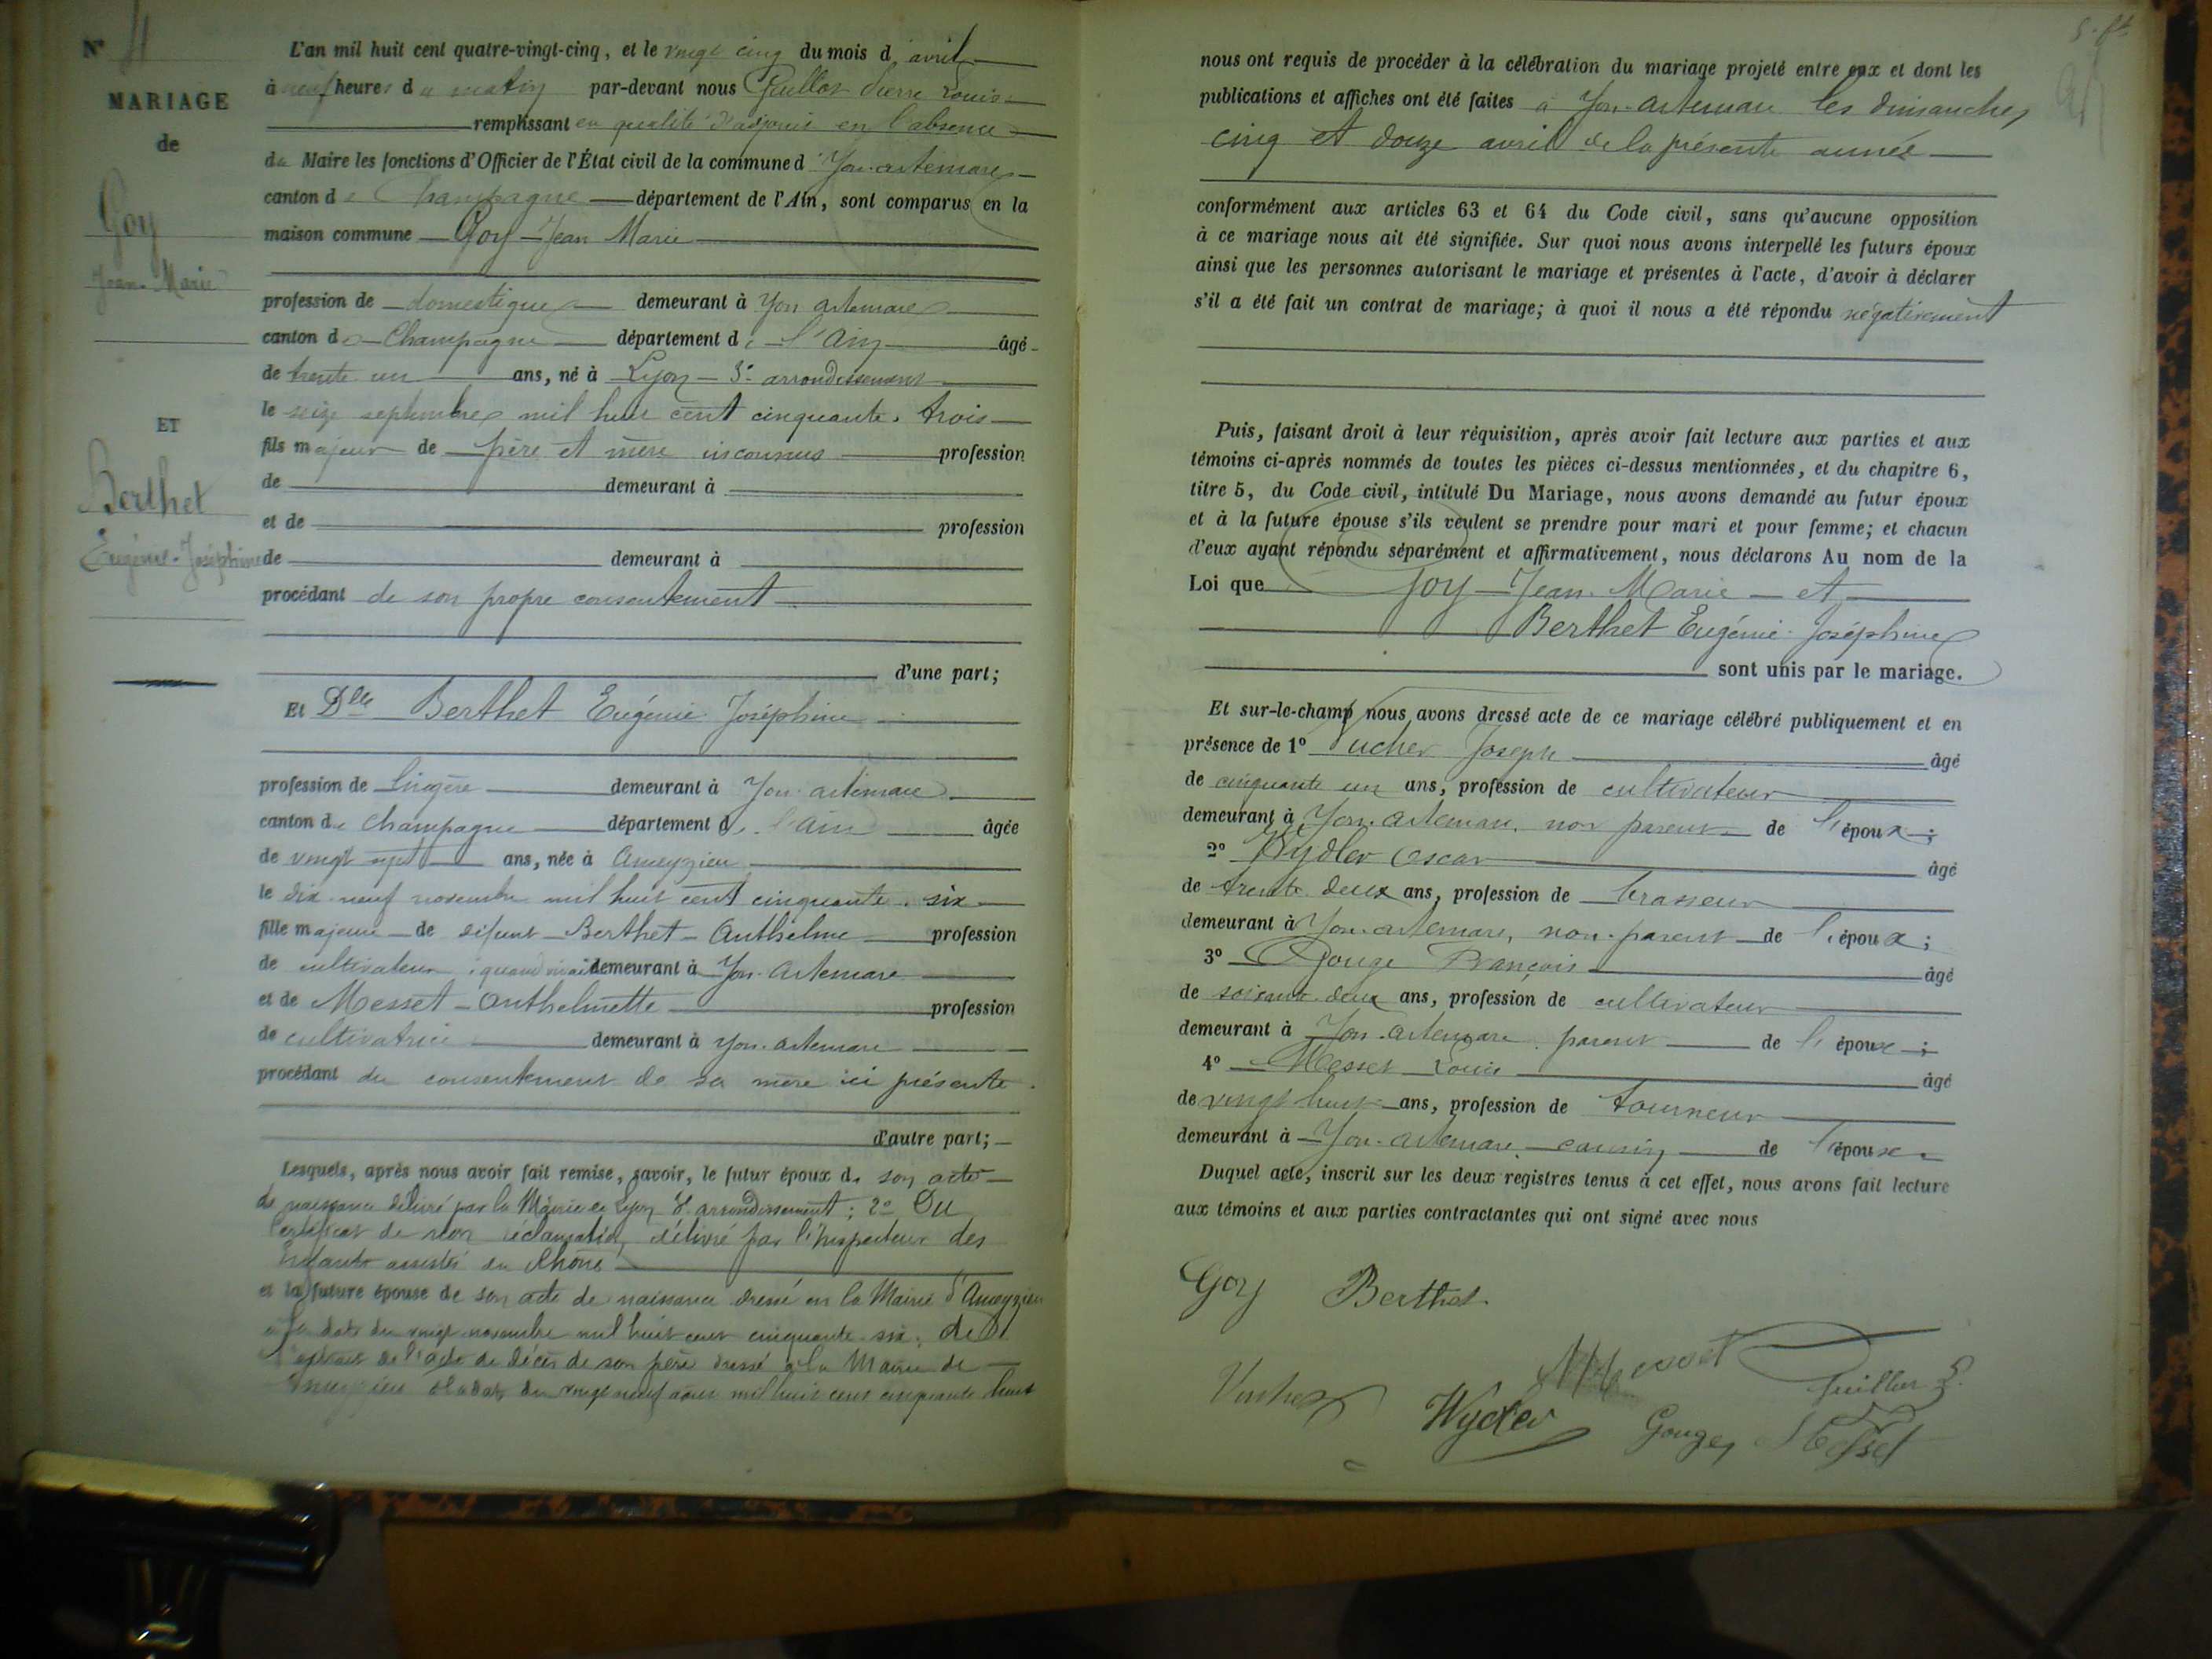 N° 4
MARIAGE
de
Goy
Jean-Marie
ET
Berthet
Eugénie-Joséphine
L'an mil huit cent quatre-vingt-cinq, et le vingt cinq du mois d'avril
à neuf heures du matin par-devant nous Guillot Pierre Louis
remplissant en qualité d'adjoint en l'absence
du Maire les fonctions d'Officier de l'État civil de la commune d'Yon-artemare
canton de Champagne département de l'Ain, sont comparus en la
maison commune Goy Jean Marie
profession de domestique demeurant à Yon artemare
canton de Champagne département de l'Ain âgé
de trente un ans, né à Lyon 3e arrondissement
le seize septembre mil huit cent cinquante-trois
fils majeur de père et mère inconnus profession
de demeurant à
et de profession
de demeurant à
procédant de son propre consentement
d'une part;
Et Dlle Berthet Eugénie Joséphine
profession de lingère demeurant à Yon artemare
canton de Champagne département de l'Ain âgée
de vingt ans, née à Ameyzieu
le dix-neuf novembre mil huit cent cinquante-six
fille majeure de défunt Berthet Anthelme profession
de cultivateur quand vivait demeurant à Yon-Artemare
et de Messet Anthelmette profession
de cultivatrice demeurant à Yon-artemare
procédant du consentement de sa mère ici présente.
d'autre part;
Lesquels, après nous avoir fait remise, savoir, le futur époux de son acte
de naissance délivré par la Mairie de Lyon arrondissement; 2° Du
Certificat de non réclamation, délivré par l'Inspecteur des
Enfants assistés du Rhône
et la future épouse de son acte de naissance dressé en la Mairie d'Ameyzieu
à la date du vingt novembre mil huit cent cinquante-six, de
l'extrait de l'acte de décès de son père dressé à la Mairie de
Ameyzieu à la date du vingt neuf août mil huit cent cinquante huit
nous ont requis de procéder à la célébration du mariage projeté entre eux et dont les
publications et affiches ont été faites à Yon-artemare les dimanches
cinq et douze avril de la présente année
conformément aux articles 63 et 64 du Code civil, sans qu'aucune opposition
à ce mariage nous ait été signifiée. Sur quoi nous avons interpellé les futurs époux
ainsi que les personnes autorisant le mariage et présentes à l'acte, d'avoir à déclarer
s'il a été fait un contrat de mariage; à quoi il nous a été répondu négativement
Puis, faisant droit à leur réquisition, après avoir fait lecture aux parties et aux
témoins ci-après nommés de toutes les pièces ci-dessus mentionnées, et du chapitre 6,
titre 5, du Code civil, intitulé Du Mariage, nous avons demandé au futur époux
et à la future épouse s'ils veulent se prendre pour mari et pour femme; et chacun
d'eux ayant répondu séparément et affirmativement, nous déclarons Au nom de la
Loi que Goy Jean-Marie et
Berthet Eugénie Joséphine
sont unis par le mariage.
Et sur-le-champ nous avons dressé acte de ce mariage célébré publiquement et en
présence de 1° Vucher Joseph âgé
de cinquante un ans, profession de cultivateur
demeurant à Yon-Artemare, non parent de l'époux;
2° Wydler Oscar âgé
de trente deux ans, profession de brasseur
demeurant à Yon-artemare, non-parent de l'époux;
3° Gouge François âgé
de soixante-deux ans, profession de cultivateur
demeurant à Yon-artemare parent de l'épouse;
4° Messet Louis âgé
de vingt huit ans, profession de tourneur
demeurant à Yon-artemare, cousin de l'épouse
Duquel acte, inscrit sur les deux registres tenus à cet effet, nous avons fait lecture
aux témoins et aux parties contractantes qui ont signé avec nous
Goy Berthet
Messet
Vucher Wydler Gouge Messet